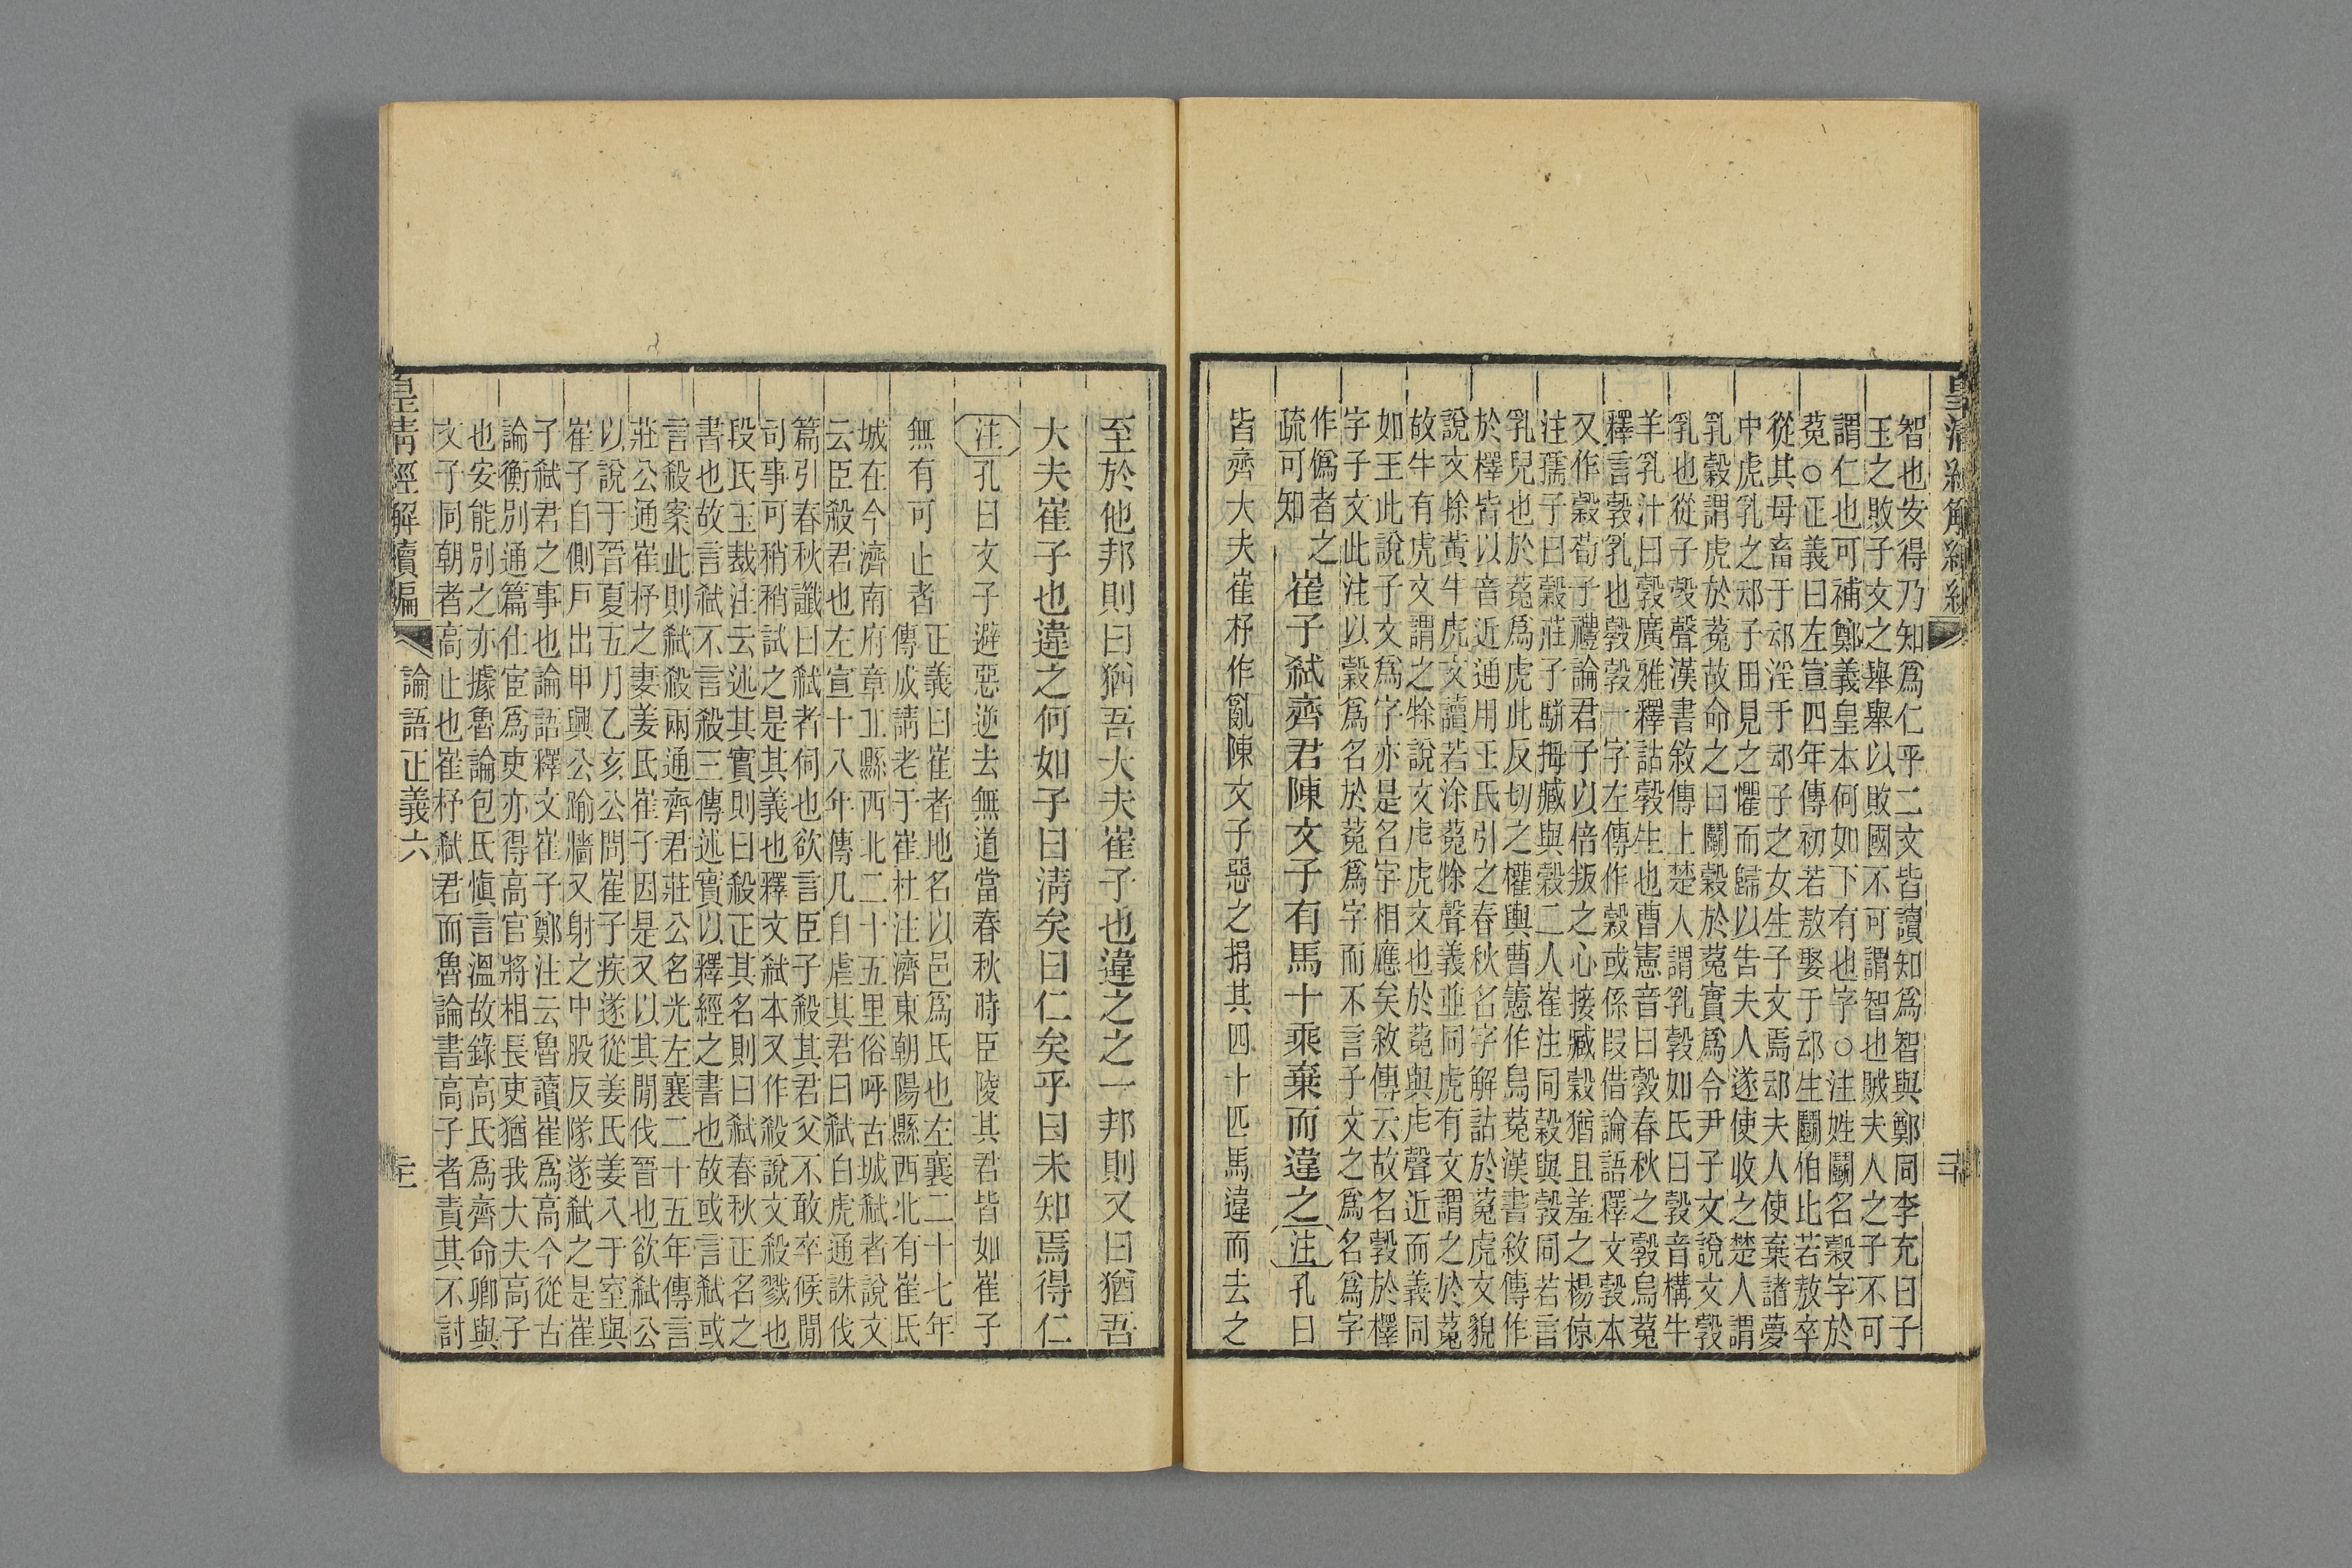 皇清經解續編
智也安得乃知爲仁乎二文皆讀知爲智與鄭同李充曰子
玉之敗子文之舉舉以敗國不可謂智也賊夫人之子不可
謂仁也可補鄭義皇本何如下有也字○注姓鬬名穀字於
菟○正義曰左宣四年傳初若敖娶于䢵生鬬伯比若敖卒
從其母畜于䢵淫于䢵子之女生子文焉䢵夫人使棄諸夢
中虎乳之䢵子田見之懼而歸以告夫人遂使收之楚人謂
乳穀謂虎於菟故命之曰鬬穀於菟實爲令尹子文說文㝅
乳也從子㱿聲漢書敘傳上楚人謂乳㝅如氏曰㝅音構牛
羊乳汁曰㝅廣雅釋詁㝅生也曹憲音曰㝅春秋之㝅烏菟
釋言㝅乳也㝅㝅一字左傳作穀或係叚借論語釋文㝅本
又作穀荀子禮論君子以倍叛之心接臧穀猶且羞之楊倞
注孺子曰穀莊子駢拇臧與穀二人崔注同穀與㝅同若言
乳兒也於菟爲虎此反切之權輿曹憲作烏菟漢書敘傳作
於檡皆以音近通用王氏引之春秋名字解詁於菟虎文貌
說文㹎黃牛虎文讀若涂菟㹎聲義並同虎有文謂之於菟
故牛有虎文謂之㹎說文虍虎文也於菟與虍聲近而義同
如王此說子文爲字亦是名字相應矣敘傳云故名㝅於檡
字子文此注以穀爲名於菟爲字而不言子文之爲名爲字
作僞者之
疏可知
崔子弒齊君陳文子有馬十乘棄而違之注孔曰
皆齊大夫崔杼作亂陳文子惡之捐其四十匹馬違而去之
至於他邦則曰猶吾大夫崔子也違之之一邦則又曰猶吾
大夫崔子也違之何如子曰淸矣曰仁矣乎曰未知焉得仁
注孔曰文子避惡逆去無道當春秋時臣陵其君皆如崔子
無有可止者
正義曰崔者地名以邑爲氏也左襄二十七年
傳成請老于崔杜注濟東朝陽縣西北有崔氏
城在今濟南府章丘縣西北二十五里俗呼古城弒者說文
云臣殺君也左宣十八年傳凡自虐其君曰弒白虎通誅伐
篇引春秋讖曰弒者伺也欲言臣子殺其君父不敢卒候閒
司事可稍稍試之是其義也釋文弒本又作殺說文殺戮也
段氏玉裁注云述其實則曰殺正其名則曰弒春秋正名之
書也故言弒不言殺三傳述實以釋經之書也故或言弒或
言殺案此則弒殺兩通齊君莊公名光左襄二十五年傳言
莊公通崔杼之妻姜氏崔子因是又以其閒伐晉也欲弒公
以說于晉夏五月乙亥公問崔子疾遂從姜氏姜入于室與
崔子自側戶出甲興公踰牆又射之中股反隊遂弒之是崔
子弒君之事也論語釋文崔子鄭注云魯讀崔爲高今從古
論衡別通篇仕宦爲吏亦得高官將相長吏猶我大夫高子
也安能別之亦據魯論包氏愼言溫故錄高氏爲齊命卿與
文子同朝者高止也崔杼弒君而魯論書高子者責其不討
皇清經解續編
論語正義六